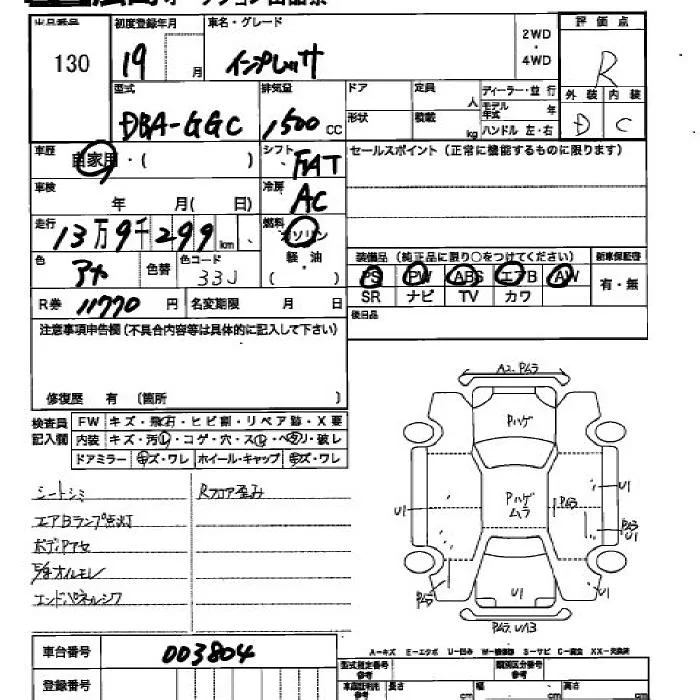 オークション出品票
出品番号 初度登録年月 車名・グレード 2WD・4WD 評価点
130 19 月 インプレッサ R
外装 内装
D C
型式 排気量 ドア 定員 人 ディーラー・並行
DBA-GGC 1,500 CC 形状 積載 kg モデル年式 年
ハンドル 左・右
車歴 自家用・( ) シフト FAT セールスポイント(正常に機能するものに限ります)
車検 年 月( 日) 冷房 AC
走行 13万9千299 km 燃料 ガソリン 軽・油 ( )
色 アオ 色替 色コード 33J
装備品(純正品に限り○をつけてください) 新車保証書
PS PW ABS エアB AW 有・無
SR ナビ TV カワ
R券 11770 円 名変期限 月 日
後日品
注意事項申告欄(不具合内容等は具体的に記入して下さい)
修復歴 有 〔箇所 〕
検査員記入欄 FW キズ・飛石・ヒビ割・リペア跡・X要
内装 キズ・汚れ・コゲ・穴・スレ・ヘタリ・破レ
ドアミラー キズ・ワレ ホイール・キャップ キズ・ワレ
シートシミ Rフロア歪み
エアBランプ点灯
ボディアセ
オイルモレ
エンドパネルシワ
A2.Pムラ
Pハゲ
Pハゲ ムラ
Pムラ
U1
U1
Pムラ U1
Pムラ
U1
U1
Pムラ.UA3
A−キズ E−エクボ U−凹み W−補修跡 S−サビ C−腐蝕 XX−交換済
車台番号 003804
型式指定番号 参考 類別区分番号 参考
登録番号
長さ cm 幅 cm 高さ cm